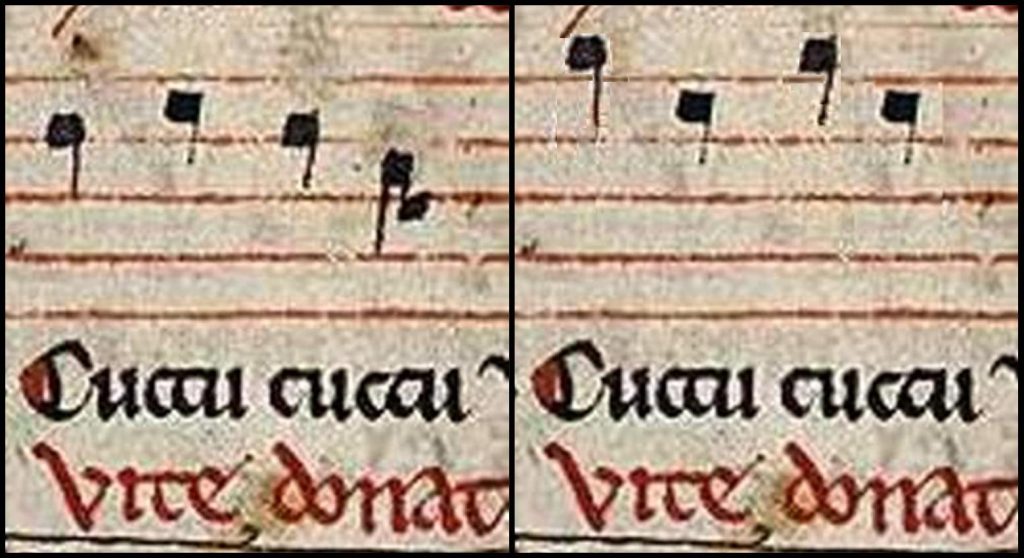 Cuccu cuccu
Vite donat
Cuccu cuccu
Vite donat